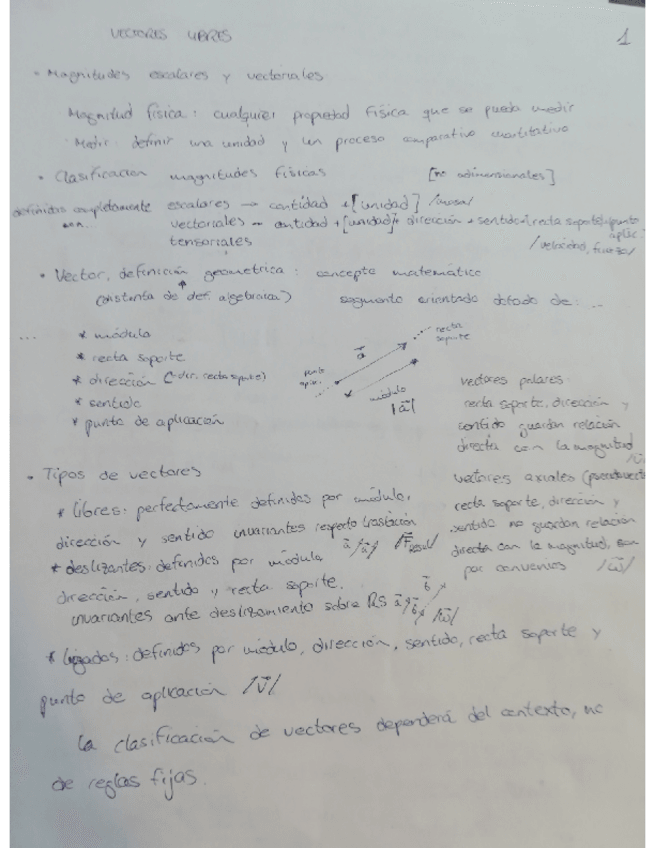 VECTORES LIBRES
1
• Magnitudes escalares y vectoriales
Magnitud física: cualquier propiedad física que se pueda medir
Medir: definir una unidad y un proceso comparativo cuantitativo
• Clasificación magnitudes físicas [no adimensionales]
definidos completamente con.
escalares → cantidad + [unidad] /masa/
vectoriales → cantidad + [unidad] + dirección + sentido + (recta soporte) + punto aplic.
/velocidad, fuerza/
tensoriales
• Vector, definición geométrica: concepto matemático
(existenta de def. algebraica) segmento orientado dotado de: ...
... * módulo
* recta soporte
* dirección (dir. recta soporte)
* sentido
* punto de aplicación
recta soporte
a⃗
punto aplic.
módulo
|a⃗|
vectores polares
recta soporte, dirección y
sentido guardan relación
directa con la magnitud
• Tipos de vectores
* libres: perfectamente definidos por módulo,
dirección y sentido invariantes respecto traslación
* deslizantes: definidos por módulo
dirección, sentido y recta soporte.
invariantes ante deslizamiento sobre RS
vectores axiales
recta soporte, dirección y
sentido no guardan relación
directa con la magnitud, son
por convenios /ω⃗/
* ligados: definidos por módulo, dirección, sentido, recta soporte y
punto de aplicación /v⃗/
La clasificación de vectores dependerá del contexto, no
de reglas fijas.